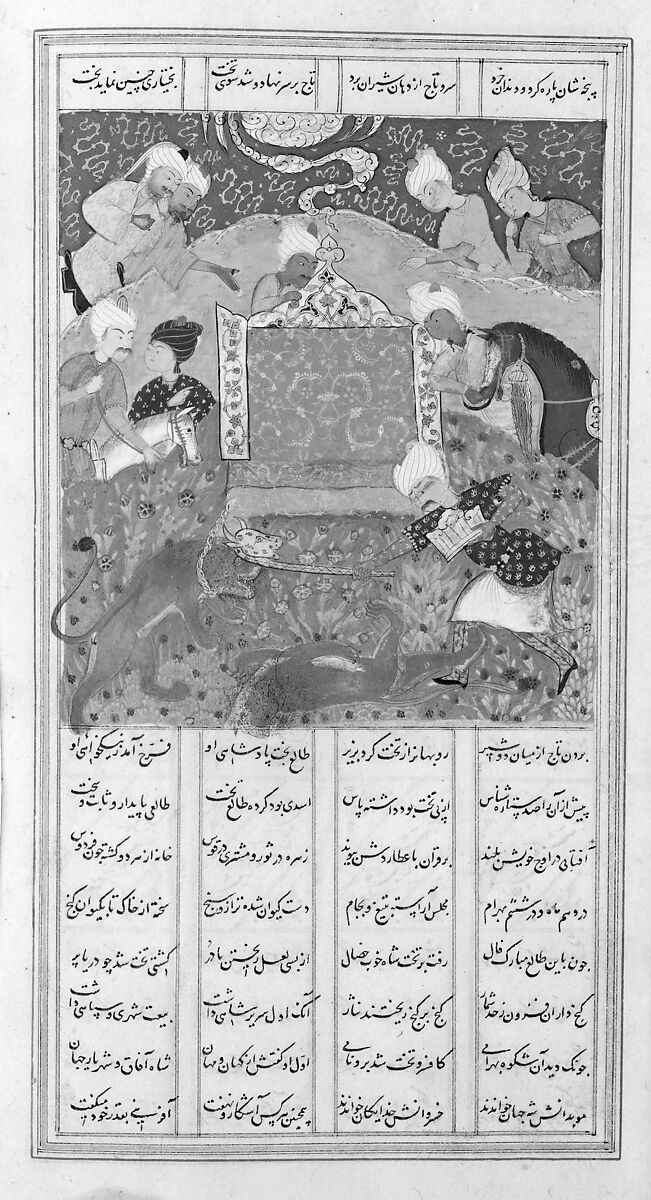 پنجه شان پاره کرد و دندان خرد سر و تاج از دهان شیران برد تاج بر سر نهاد و شد سوی تخت بختیاری چنین نماید بخت
بردن تاج از میان دو شیر روبهانرا ز تخت کرد بزیر طالع تخت پادشاهی او فرخ آمد ز نیکخواهی او
پیش از آن راصد ستاره شناس از پی تخت بود داشته پاس اسدی بود کرده طالع تخت طالعی پایدار و ثابت و سخت
آفتابی در اوج خویش بلند بر قران با عطاردش پیوند زهره در ثور و مشتری در قوس خانه از هر دو گشته چون فردوس
در دهم ماه و در ششم بهرام مجلس آراسته بتیغ و بجام دست کیوان شده ترازو سنج سخته از خاک تا بکیوان گنج
چون باین طالع مبارک فال رفت بر تخت شاه خوب خصال از بسی لعل ریختن با در کشتی تخت شد چو دریا پر
گنج داران فزون ز حد شمار گنج بر گنج ریختند نثار آنک اول سریر شاهی داشت بیعت شهری و سپاهی داشت
چونک دید آن شکوه بهرامی تخت شد برو نامی اول او گفتش از کهان و مهان شاه آفاق و شهریار جهان
موبدانش شه جهان خواندند خسروانش خدایگان خواندند همچنین هر کس آشکار و نهفت آفرینی بقدر خود میگفت